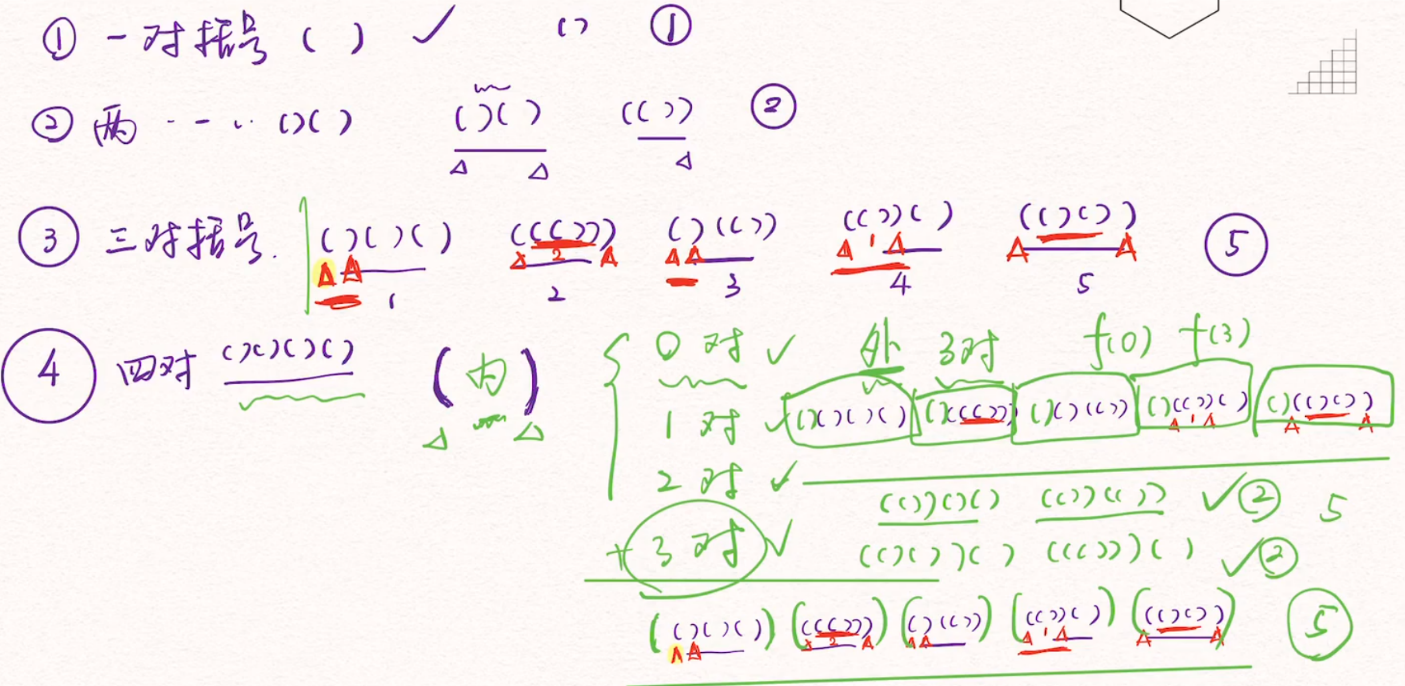 ① 一对括号 ( ) ✓ () ①
② 两 - - - .. ()() ()() (()) ②
③ 三对括号. ()()() ((())) ()(()) (())() (()()) ⑤
1 2 3 1 4 5
2
④ 四对 ()()()() (内) 0对 ✓ 外 3对 f(0) f(3)
1对 ✓ ()()()() ()((())) ()()(()) ()(())() ()(()())
2对 ✓ (())()() (())(()) ✓② 5
+ 3对 ✓ (()())() ((()))() ✓②
(()()()) (((()))) (()(())) ((())()) ((()())) ⑤